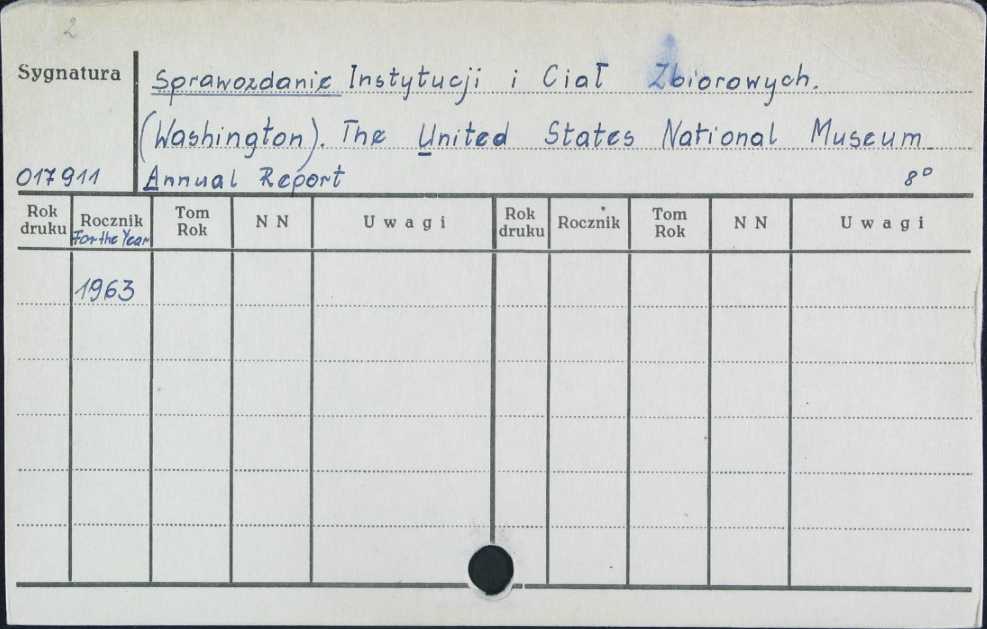 2
Sygnatura
Sprawozdanie Instytucji i Ciał Zbiorowych.
(Washington). The United States National Museum
017911
Annual Report 8°
Rok druku Rocznik Tom Rok N N Uwagi Rok druku Rocznik Tom Rok N N Uwagi
For the Year
1963